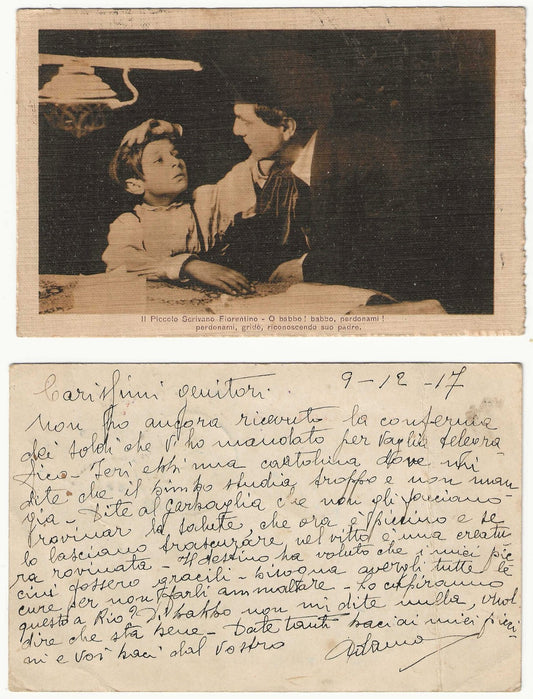 Il Piccolo Scrivano Fiorentino - O babbo! babbo, perdonami!
perdonami, gridò, riconoscendo suo padre.
Carissimi genitori. 9-12-17
Non ho ancora ricevuto la conferma
dei soldi che v'ho mandato per vaglia telegra
fico - Ieri ebbi una cartolina dove mi
dite che il bimbo studia troppo e non man
gia - Dite al Garbaglia che non gli facciano
rovinar la salute, che ora è piccino e se
lo lasciano trascurare nel vitto è una creatu
ra rovinata - Il destino ha voluto che i miei pic
cini fossero gracili - bisogna avergli tutte le
cure per non farli ammalare - Lo capiranno
questo a Rio? Di babbo non mi dite nulla, vuol
dire che sta bene - Date tanti baci ai miei picci
ni e voi baci dal vostro Adamo